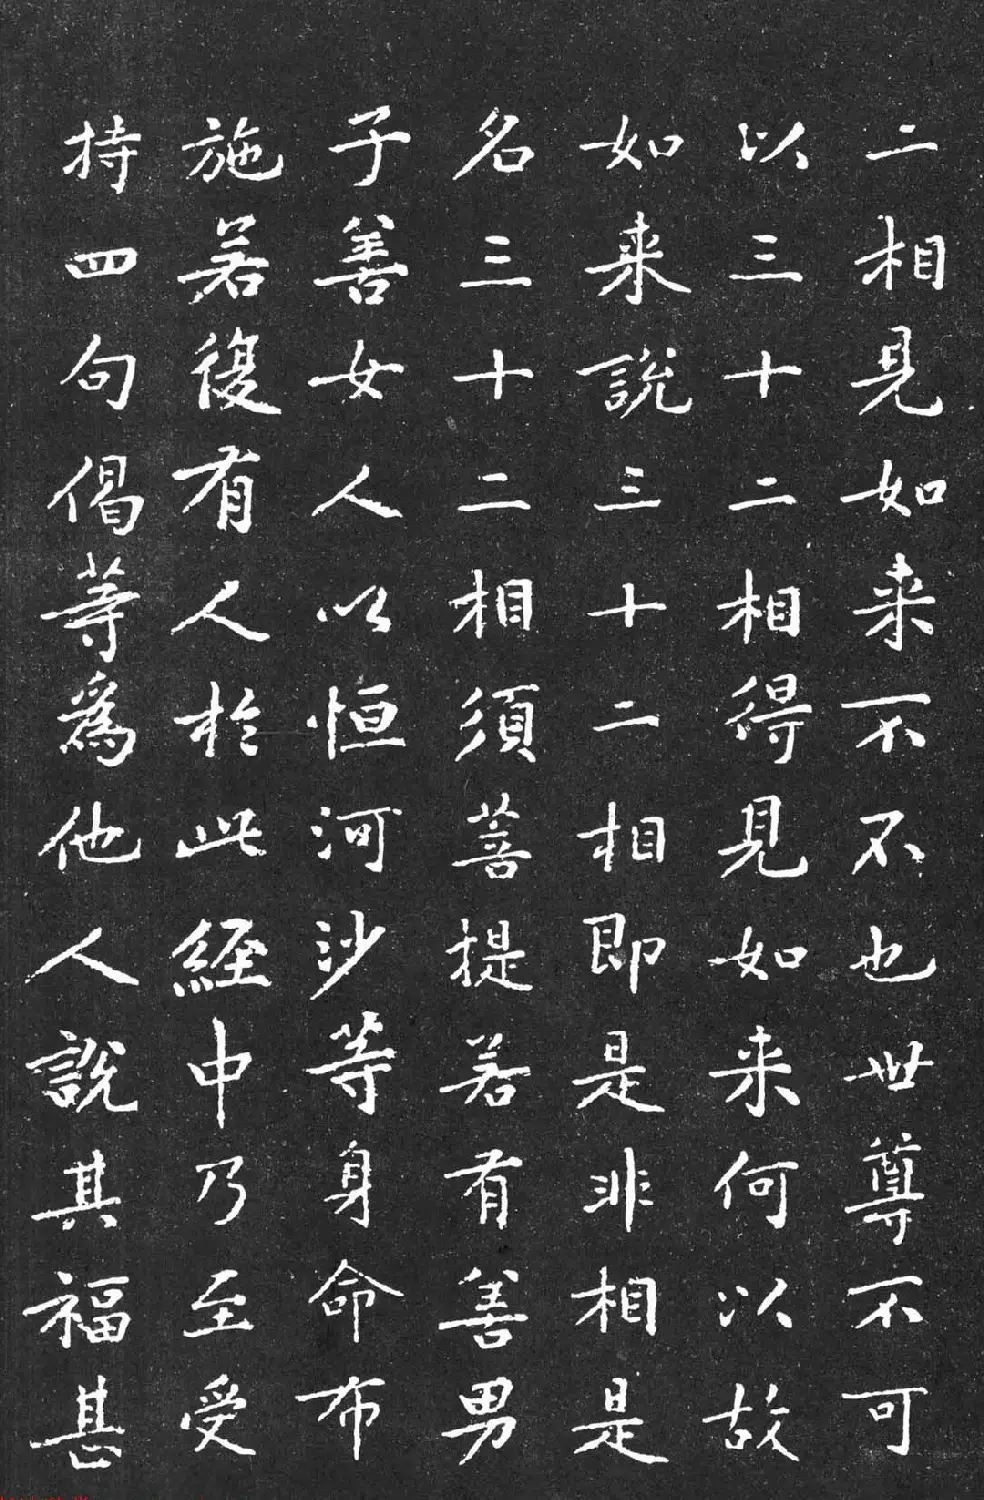 二相見如来不不也世尊不可
以三十二相得見如来何以故
如来說三十二相即是非相是
名三十二相須菩提若有善男
子善女人以恒河沙等身命布
施若復有人於此經中乃至受
持四句偈等爲他人說其福甚